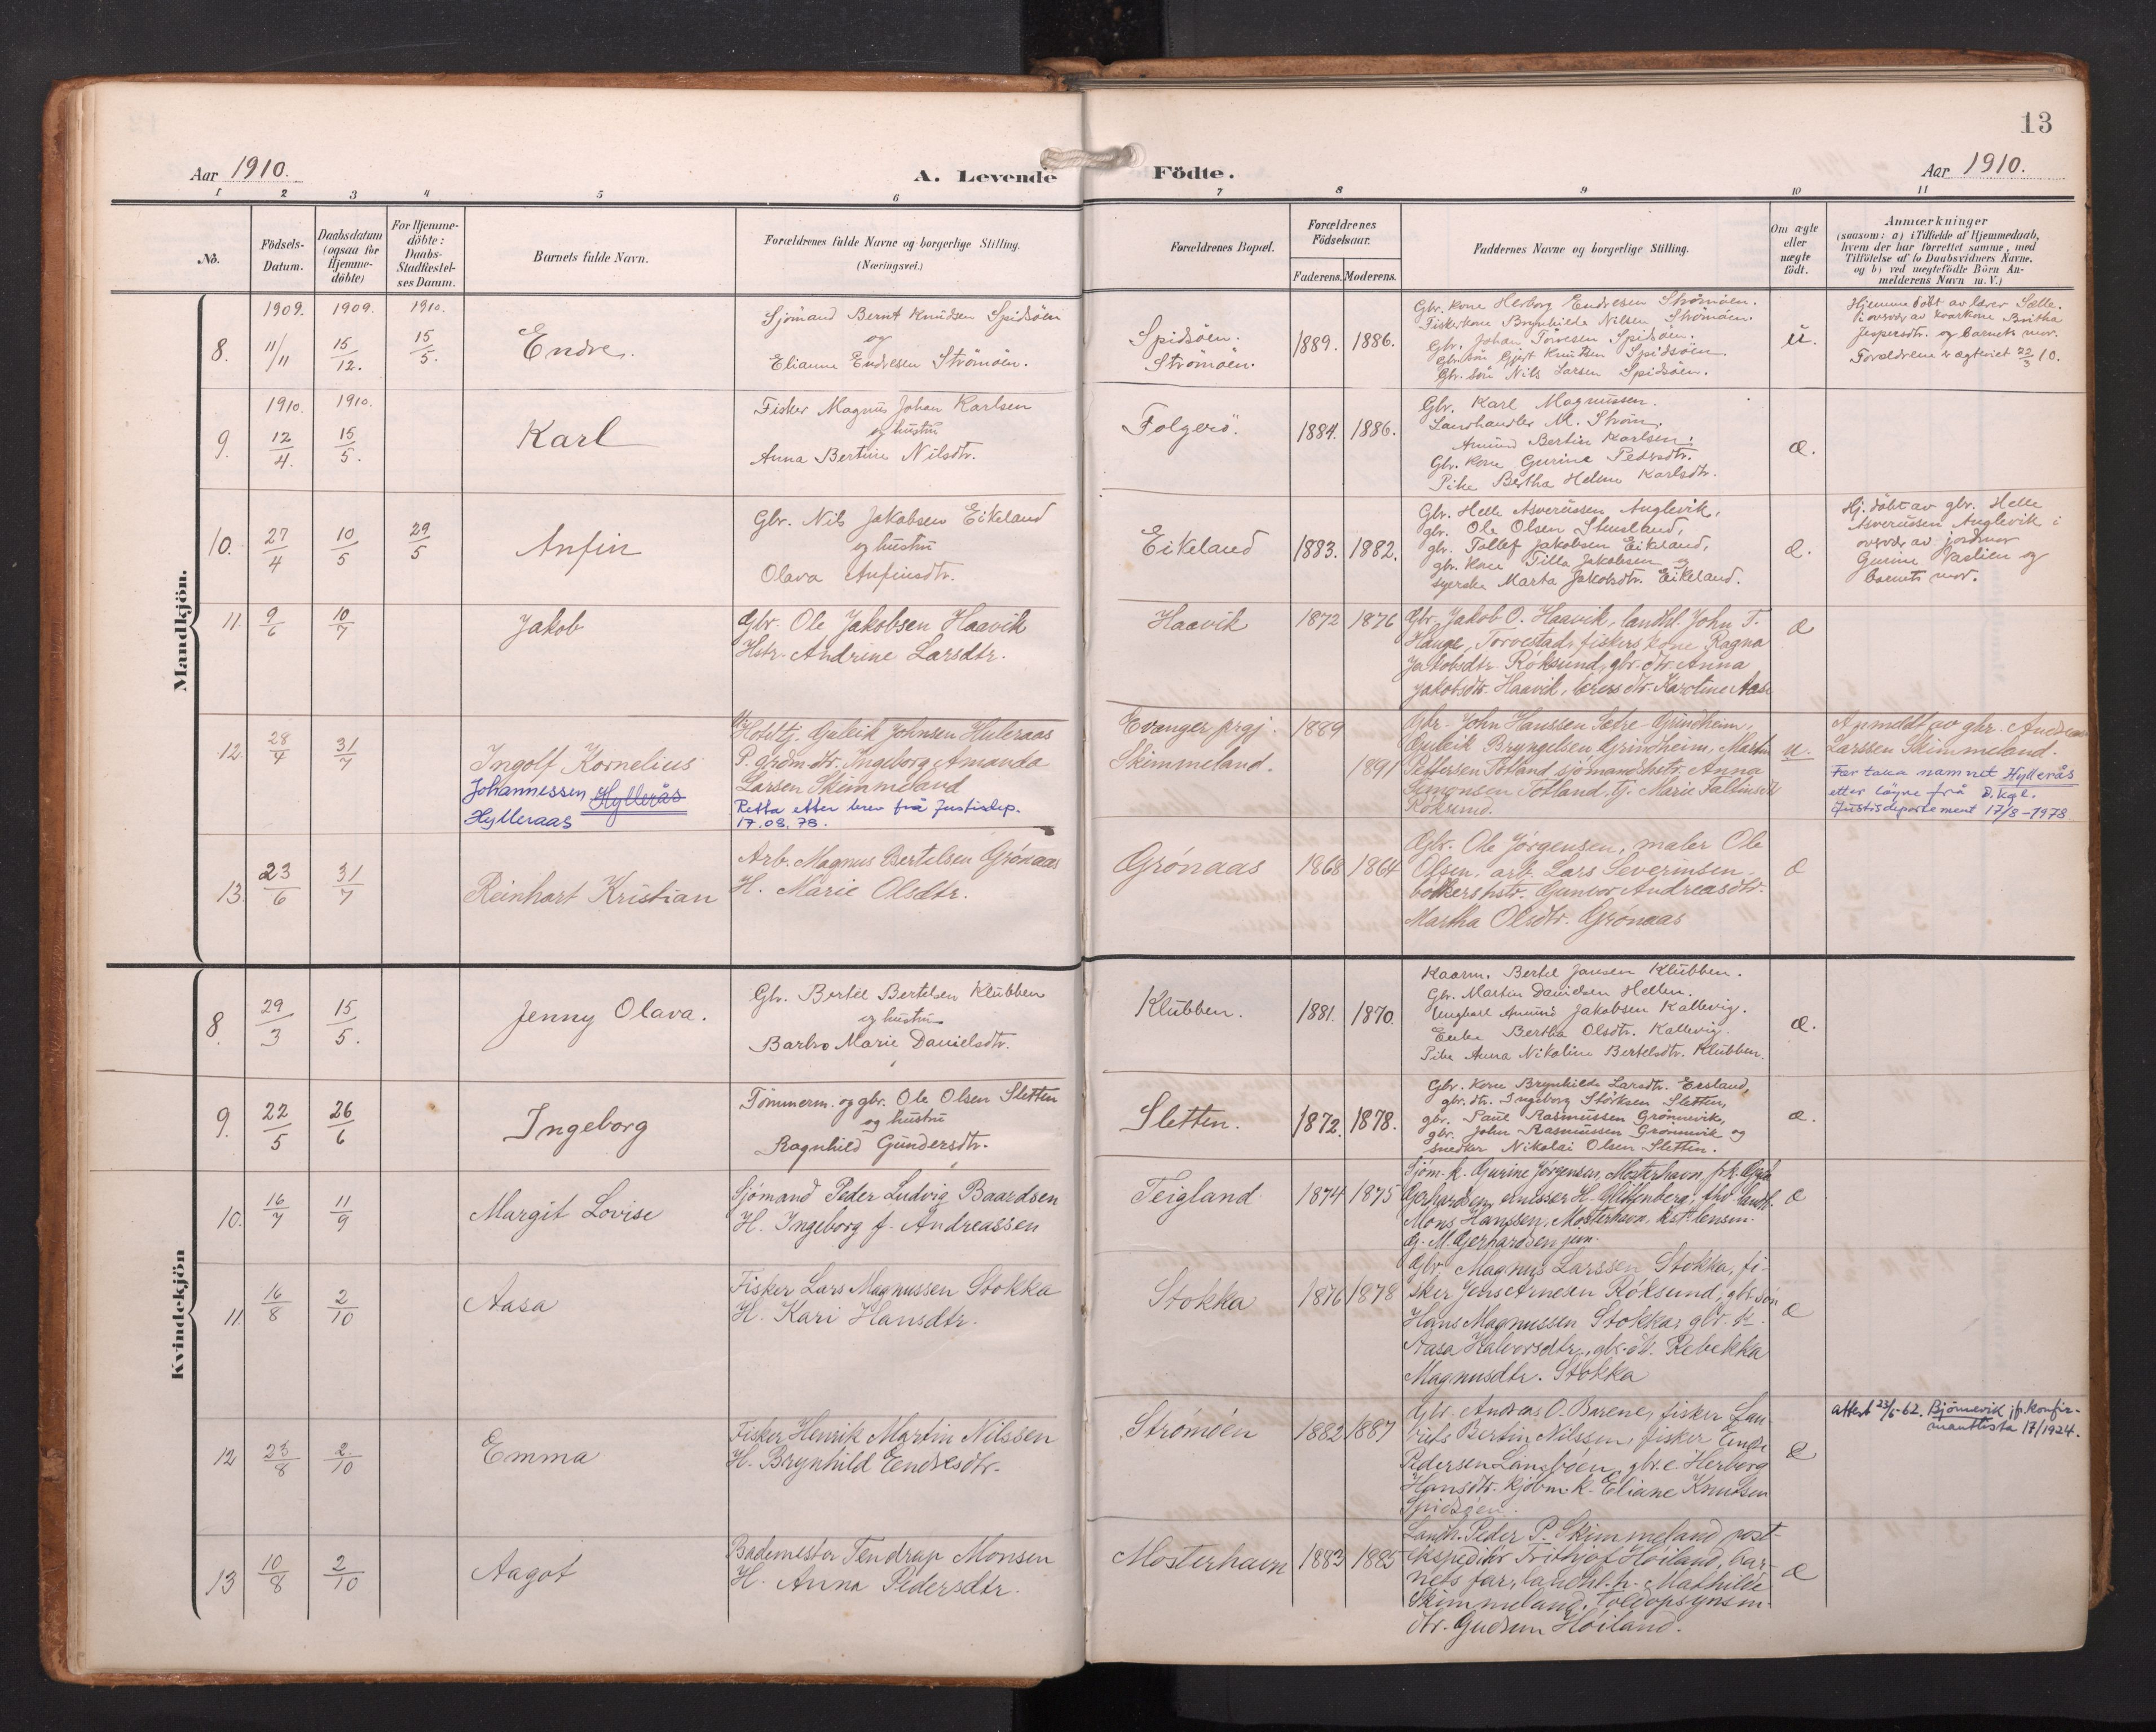 13
Aar 1910.
A. Levende Födte.
Aar 1910.
1 2 3 4 5 6 7 8 9 10 11
No.
Födsels-
Datum.
Daabsdatum
(ogsaa for
Hjemme-
döbte)
For Hjemme-
döbte:
Daabs-
Stadfæstel-
ses Datum.
Barnets fulde Navn.
Forældrenes fulde Navne og borgerlige Stilling.
(Næringsvei.)
Forældrenes Bopæl.
Forældrenes
Födselsaar.
Faderens. Moderens.
Faddernes Navne og borgerlige Stilling.
Om ægte
eller
uægte
födt.
Anmærkninger
(saasom: a) i Tilfælde af Hjemmedaab,
hvem der har forrettet samme, med
Tilföielse af to Daabsvidners Navne.
og b) ved uægtefödte Börn An-
melderens Navn m. V.)
Mandkjön.
8.
1909.
11/11
1909.
15/12.
1910.
15/5.
Endre.
Sjömand Bernt Knudsen Spidsöen
og
Elianne Endresen Strömöen.
Spidsöen.
Strömöen.
1889. 1886.
Gbr. kone Herborg Endresen Strömöen.
Fiskerkone Brynhilde Nilsen Strömöen.
Gbr. Johan Torvesen Spidsöen.
Gbr. sön Gjert Knutsen Spidsöen.
Gbr. sön Nils Larsen Spidsöen.
u.
Hjemmedöbt av lærer Sælle.
i overvær av kaarkone Britha
Jespersdtr. og barnets mor.
Forældrene er ægteviet 22/3 10.
9.
1910.
12/4.
1910.
15/5.
Karl
Fisker Magnus Johan Karlsen
og hustru
Anna Bertine Nilsdtr.
Folgerö.
1884. 1886.
Gbr. Karl Magnussen.
Landhandler M. Ström.
Amund Bertin Karlsen.
Gbr. kone Gurine Pedersdtr.
Pike Bertha Helene Karlsdtr.
æ.
10.
27/4
10/5
29/5
Anfin
Gbr. Nils Jakobsen Eikeland
og hustru
Olava Anfinsdtr.
Eikeland
1883. 1882.
Gbr. Helle Asverussen Auglevik,
gbr. Ole Olsen Stensland,
gbr. Tollef Jakobsen Eikeland,
gbr. kone Tilla Jakobsen og
syerske Marta Jakobsdtr. Eikeland.
æ.
Hj. döbt av gbr. Helle
Asverussen Auglevik i
overvær av jordmor
Gurine Vaslien og
barnets mor.
11.
9/6
10/7
Jakob
Gbr. Ole Jakobsen Haavik
Hstr. Andrine Larsdtr.
Haavik
1872 1876
Gbr. Jakob O. Haavik, landhl. John T.
Hauge, Torvestad, fiskers kone Ragna
Jakobsdtr. Röksund, gbr. dtr. Anna
Jakobsdtr. Haavik, lærers dtr. Karoline Aase
æ
12.
28/4
31/7
Ingolf Kornelius
Johannessen Hyllerås
Hylleraas
Gulleik Johnsen Huleraas
P. grdm. dtr. Ingeborg Amanda
Larsen Skimmeland
Retta etter brev frå Justisdep.
17.08.78.
Evanger prgj.
Skimmeland.
1889
1891
Gbr. John Hanssen Sætre-Grindheim,
Guleik Bryngelsen Grindheim, Martin
Pettersen Totland, sjömandshstr. Anna
Simonsen Totland, tj. Marie
Röksund.
u.
Anmeldt av gbr. Andreas
Larssen Skimmeland.
Fær taka namnet Hyllerås
etter löyve frå D. kgl.
Justisdepartement 17/8-1978
13.
23/6
31/7
Reinhart Kristian
Arb. Magnus Bertelsen Grönaas
H. Marie Olsdtr.
Grönaas
1868 1864
Gbr. Ole Jörgensen, maler Ole
Olsen, arb. Lars Severinsen
bödkers hstr. Gunvor Andreasdtr.
Martha Olsdtr. Grönaas
æ
Kvindekjön
8.
29/3
15/5.
Jenny Olava.
Gbr. Bertel Bertelsen Klubben
og hustru
Barbro Marie Danielsdtr.
Klubben.
1881. 1870.
Kaarm. Bertel Jansen Klubben.
Gbr. Martin Danielsen Hellen.
Ungkarl Amund Jakobsen Kallevig.
Enke Bertha Olsdtr. Kallevig.
Pike Anna Nikoline Bertelsdtr. Klubben.
æ.
9.
22/5
26/6
Ingeborg
Tömmerm. og gbr. Ole Olsen Sletten
og hustru
Ragnhild Gundersdtr.
Sletten.
1872. 1878.
Gbr. kone Brynhilde Larsdtr. Eesland,
gbr. dtr. Ingeborg Störksen Sletten,
gbr. Paul Rasmussen Grönnevik,
gbr. John Rasmussen Grönnevik og
snedker Nikolai Olsen Sletten.
æ.
10.
16/7
11/9
Margit Lovise
Sjömand Peder Ludvig Baardsen
H. Ingeborg f. Andreassen
Teigland
1874 1875
Sjöm. k. Gurine Jörgensen, Mosterhavn, frk.
Gerhardsen, emissær H. Gliffenberg, fhv. landh.
Mons Hanssen, Mosterhavn, kst. lensm.
G. M. Gerhardsen jun.
æ
11.
16/8
2/10
Aasa
Fisker Lars Magnussen Stokka
H. Kari Hansdtr.
Stokka
1876 1878
Gbr. Magnus Larssen Stokka, fi-
sker Jens Arnesen Röksund, gbr. sön
Hans Magnussen Stokka, gbr. k.
Aasa Halvorsdtr., gbr. dtr. Rebekka
Magnusdtr. Stokka
æ
12
23/8
2/10
Emma
Fisker Henrik Martin Nilssen
H. Brynhild Endresdtr.
Strömöen
1882 1887
Gbr. Andreas O. Barene, fisker Lau-
rits Bertin Nilssen, fisker Endre
Pedersen Langöen, gbr. e. Herborg
Hansdtr. kjöbm. k. Eliane Knudsen
Spidsöen.
æ
attest 23/5-62. Bjönnevik jfr. konfir-
mantlista 17/1924.
13
10/8
2/10
Aagot
Bademester Tendrup Monsen
H. Anna Pedersdtr.
Mosterhavn
1883 1885
Landh. Peder P. Skimmeland, post-
ekspeditör Frithjof Höiland, bar-
nets far, landhl. h. Mathilde
Skimmeland, Toldopsynsm.
dtr. Gudrun Höiland.
æ